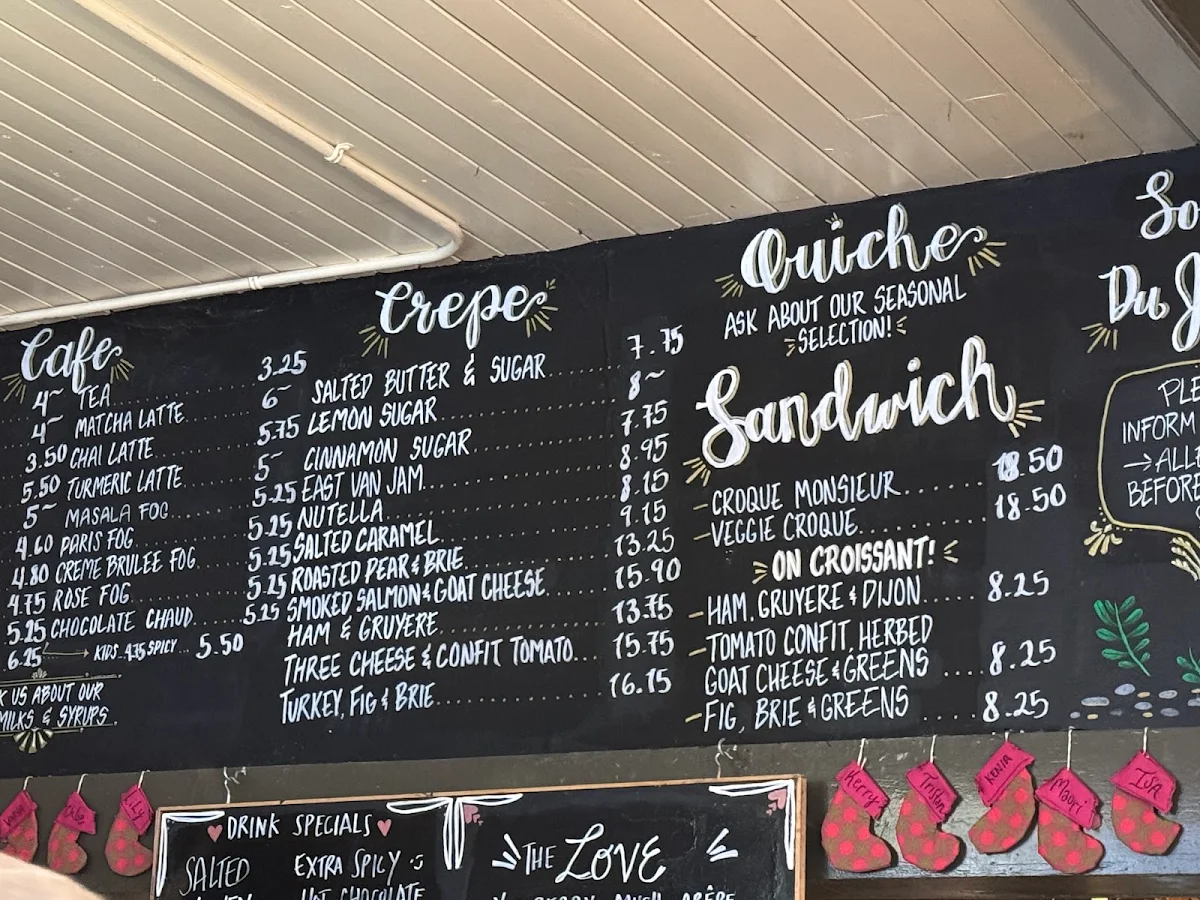 Cafe
4~ TEA 3.25
4~ MATCHA LATTE 6~
3.50 CHAI LATTE 5.75
5.50 TURMERIC LATTE 5~
5~ MASALA FOG 5.25
4.60 PARIS FOG 5.25
4.80 CREME BRULEE FOG 5.25
4.75 ROSE FOG 5.25
5.25 CHOCOLATE CHAUD 5.25
6.25 KIDS 4.75 SPICY 5.50
US ABOUT OUR
MILKS & SYRUPS
Crepe
SALTED BUTTER & SUGAR 7.75
LEMON SUGAR 8~
CINNAMON SUGAR 7.75
EAST VAN JAM 8.95
NUTELLA 8.15
SALTED CARAMEL 9.15
ROASTED PEAR & BRIE 13.25
SMOKED SALMON & GOAT CHEESE 15.90
HAM & GRUYERE 13.75
THREE CHEESE & CONFIT TOMATO 15.75
TURKEY, FIG & BRIE 16.15
Quiche
ASK ABOUT OUR SEASONAL
SELECTION!
Sandwich
- CROQUE MONSIEUR 18.50
- VEGGIE CROQUE 18.50
ON CROISSANT!
- HAM, GRUYERE & DIJON 8.25
- TOMATO CONFIT, HERBED
GOAT CHEESE & GREENS 8.25
- FIG, BRIE & GREENS 8.25
So
Du J
PLE
INFORM
→ALLE
BEFORE
DRINK SPECIALS
SALTED
EXTRA SPICY
HOT CHOCOLATE
THE LOVE
CRÊPE
Lily
Kerry
Tristan
KENIA
Maori
ISA